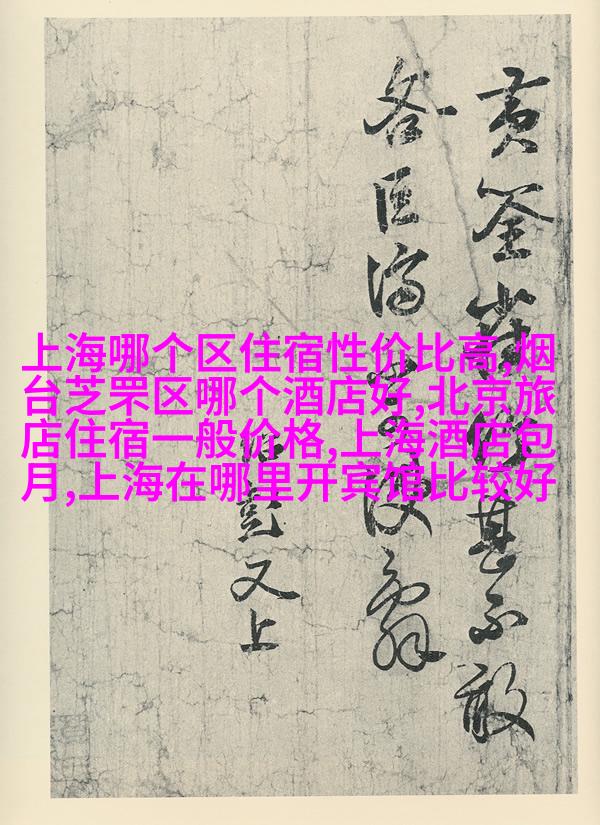 上海哪个区住宿性价比高,烟
台芝罘区哪个酒店好,北京旅
店住宿一般价格,上海酒店包
月,上海在哪里开宾馆比较好
黄筌 甚不敢
各
彭又上